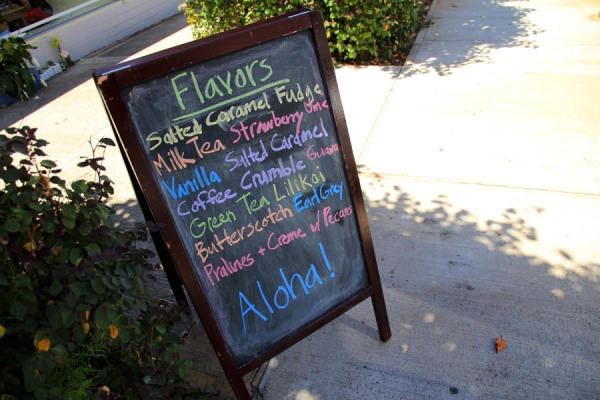 Flavors
Salted Caramel Fudge
Milk Tea Strawberry
Vanilla Salted Caramel
Coffee Crumble Guava
Green Tea Lilikoi
Butterscotch Earl Grey
Pralines + Creme w/ Pecans
Aloha!